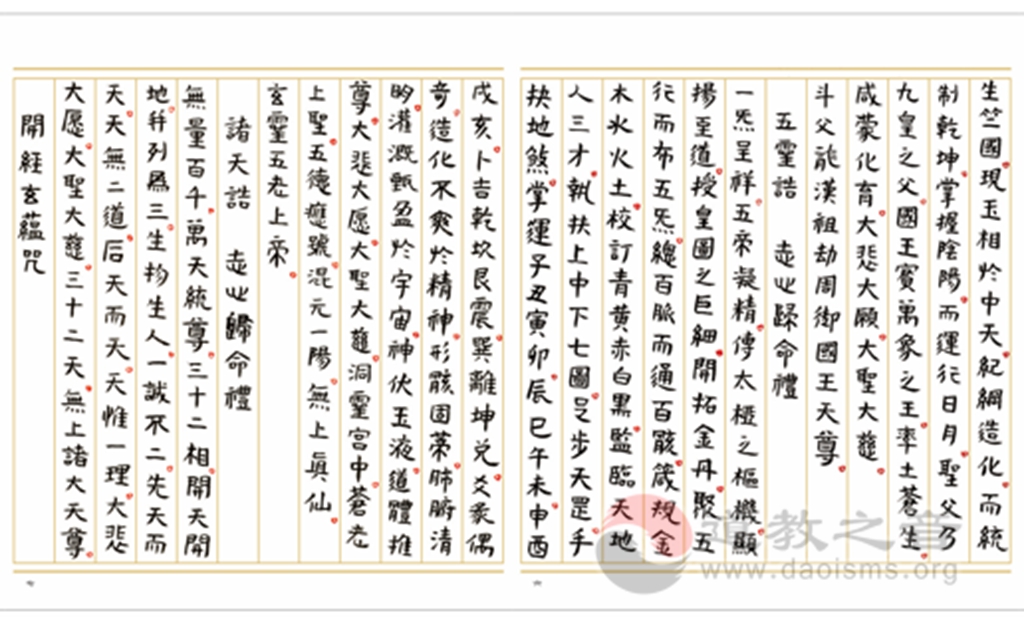 生竺國現玉相於中天紀綱造化而統
制乾坤掌握陰陽而運行日月聖父乃
九皇之父國王賓萬象之王率土蒼生
咸蒙化育大悲大願大聖大慈
斗父龍漢祖劫周御國王天尊
五靈誥 志心歸命禮
一炁呈祥五帝凝精傳太極之樞機顯
揚至道授皇圖之巨細開拓金丹聚五
行而布五炁總百脈而通百骸箴規金
木水火土校訂青黃赤白黑監臨天地
人三才執扶上中下七圖足步天罡手
抉地煞掌運子丑寅卯辰巳午未申酉
戌亥卜吉乾坎艮震巽離坤兌爻彖偶
奇造化不爽於精神形骸固蒂肺腑清
明灌溉甄盈於宇宙神伏玉液道體推
尊大悲大愿大聖大慈洞靈宮中蒼老
上聖五德應號混元一陽無上真仙
玄靈五老上帝
諸天誥 志心歸命禮
無量百千萬天統尊三十二相開天開
地并列為三生物生人一誠不二先天而
天天無二道后天而天天惟一理大悲
大愿大聖大慈三十二天無上諸大天尊
開經玄蘊咒
六
七
道教之音
www.daoisms.org